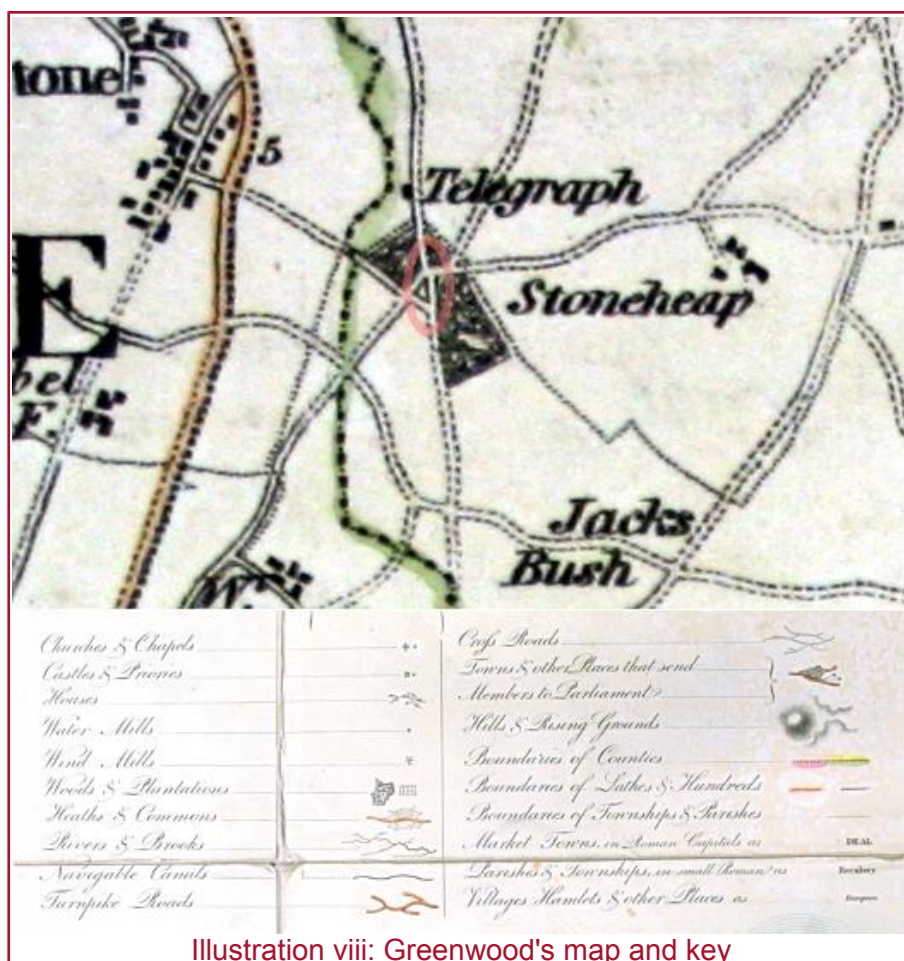 tone
5
Telegraph
E
Stoneheap
bel
F.
Jacks
Bush
W
Churches & Chapels
Castles & Priories
Houses
Water Mills
Wind Mills
Woods & Plantations
Heaths & Commons
Rivers & Brooks
Navigable Canals
Turnpike Roads
Cross Roads
Towns & other Places that send
Members to Parliament
Hills & Rising Grounds
Boundaries of Counties
Boundaries of Lathes & Hundreds
Boundaries of Townships & Parishes
Market Towns, in Roman Capitals as DEAL
Parishes & Townships, in small Roman as Reculver
Villages Hamlets & other Places as
Illustration viii: Greenwood's map and key